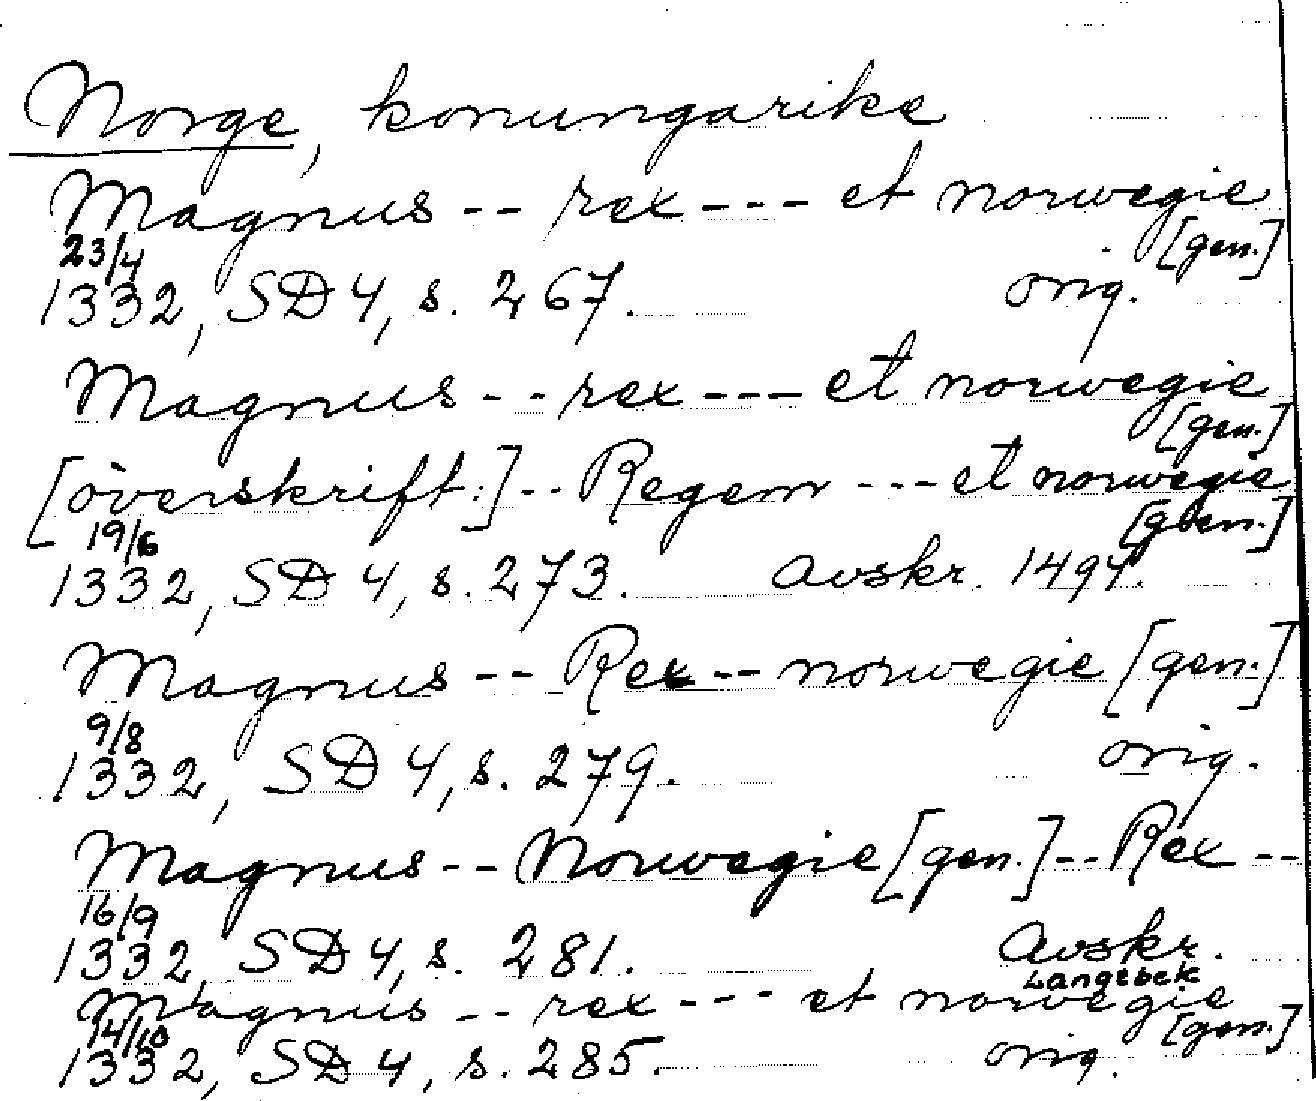 Norge, konungarike
Magnus -- rex --- et norwegie
[gen.]
23/4
1332, SD 4, s. 267. orig.
Magnus -- rex --- et norwegie
[gen.]
[överskrift:] -- Regem --- et norwegie
[gen.]
19/6
1332, SD 4, s. 273. avskr. 1494.
Magnus -- Rex -- norwegie [gen.]
9/8
1332, SD 4, s. 279. orig.
Magnus -- Norwegie [gen.] -- Rex --
16/9
1332, SD 4, s. 281. Avskr.
Langebek
Magnus -- rex --- et norwegie
[gen.]
14/10
1332, SD 4, s. 285. orig.